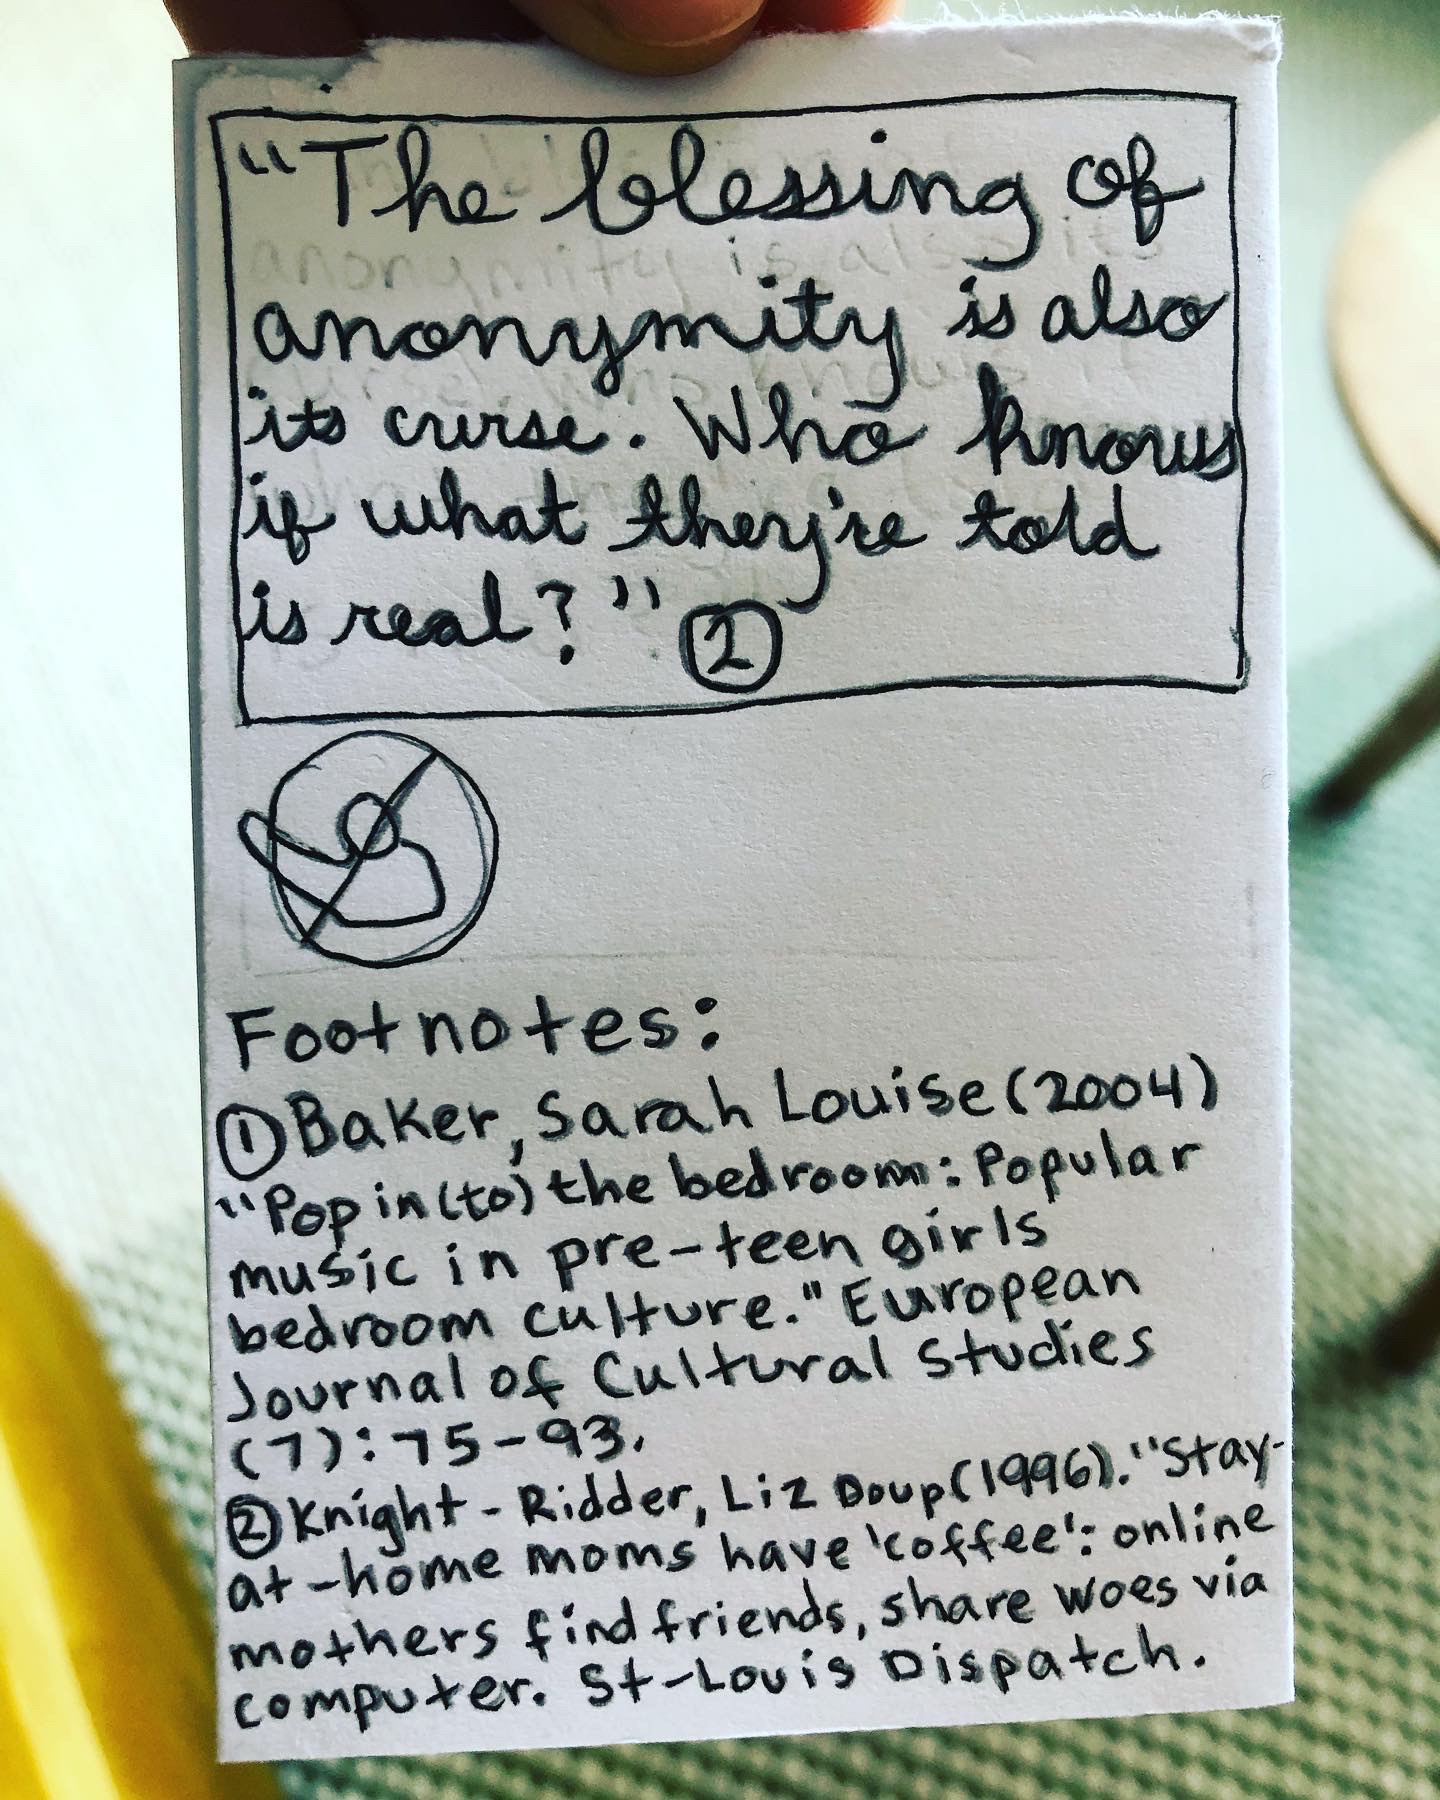 "The blessing of
anonymity is also
its curse. Who knows
if what they're told
is real?" ②
Footnotes:
① Baker, Sarah Louise (2004)
"Pop in (to) the bedroom: Popular
music in pre-teen girls
bedroom culture." European
Journal of Cultural Studies
(7): 75-93.
② Knight-Ridder, Liz Doup (1996). "Stay-
at-home moms have 'coffee': online
mothers find friends, share woes via
computer. St-Louis Dispatch.